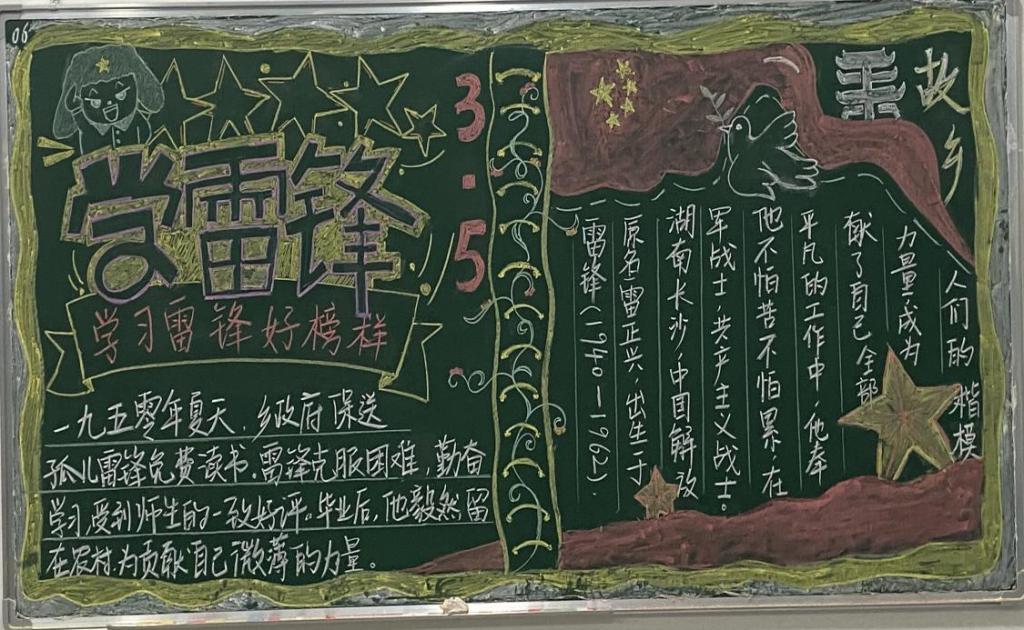 06
学雷锋
3.5
学习雷锋好榜样
一九五零年夏天,乡政府保送
孤儿雷锋免费读书,雷锋克服困难,勤奋
学习受到师生的一致好评。毕业后,他毅然留
在农村为贡献自己微薄的力量。
故乡
雷锋(1940—1962),
原名雷正兴,出生于
湖南长沙,中国解放
军战士共产主义战士。
他不怕苦不怕累,在
平凡的工作中,他奉
献了自己全部
力量成为
人们的楷模